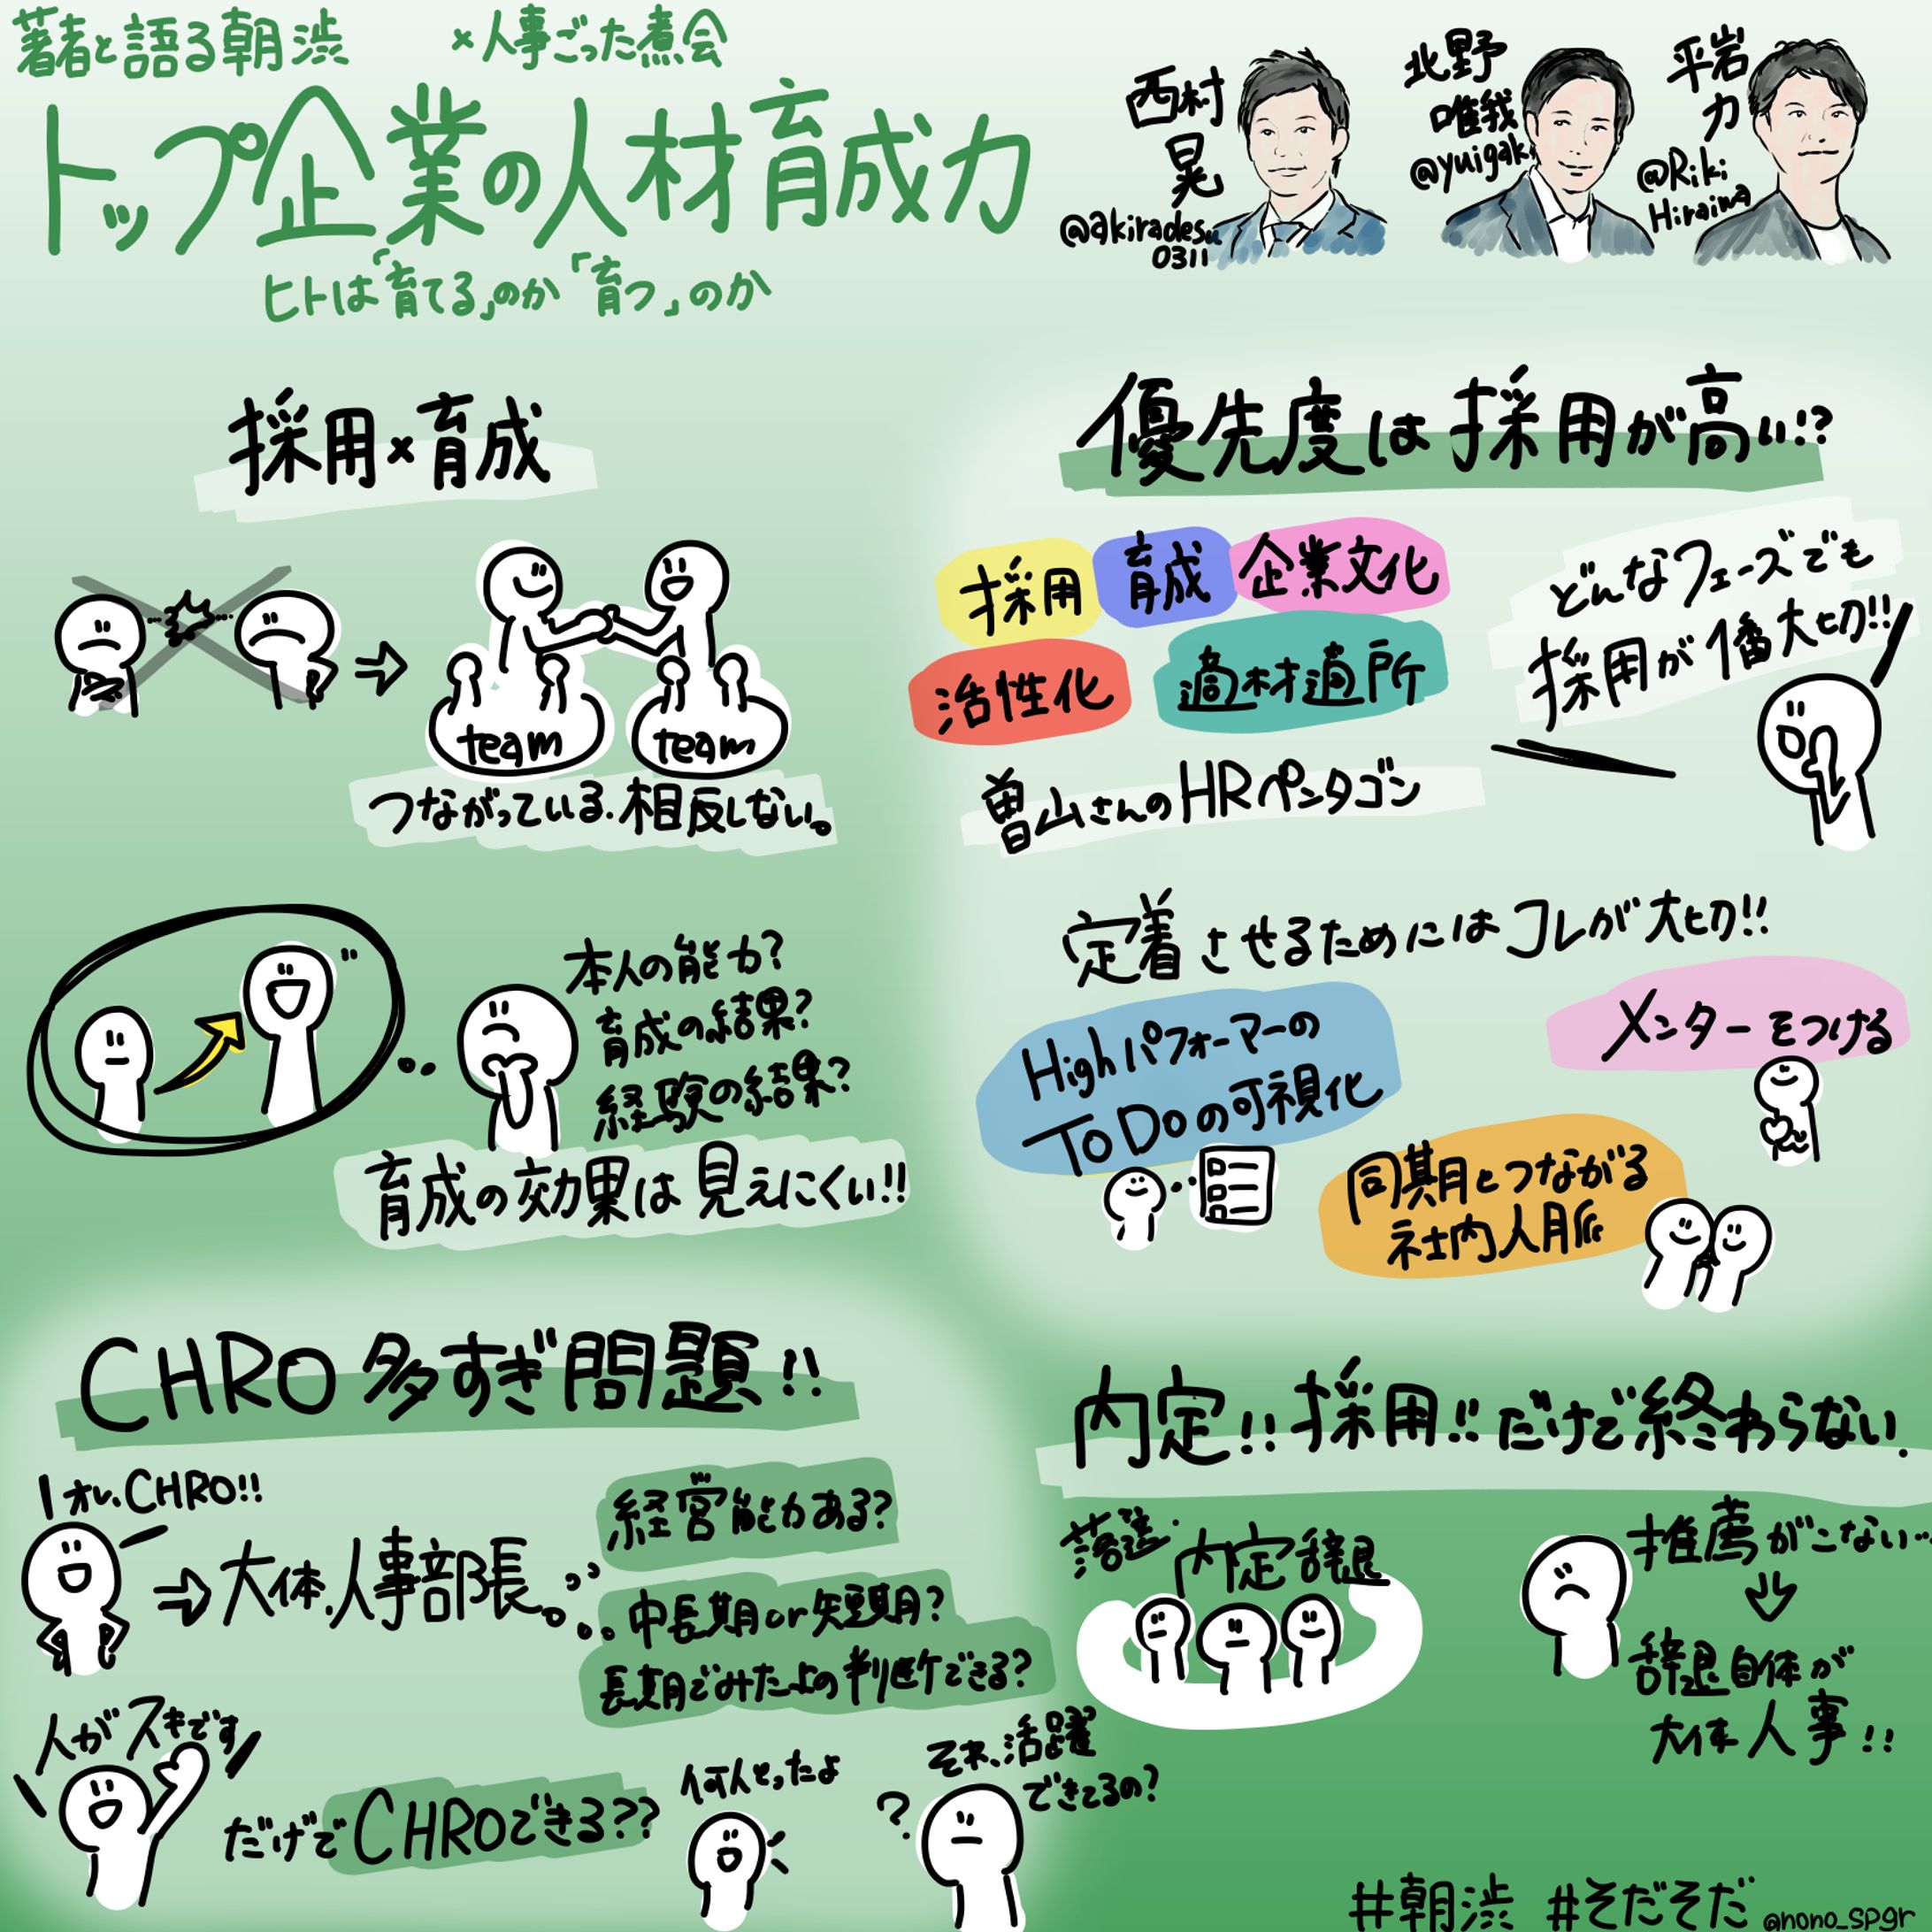 著者と語る朝渋 ×人事ごった煮会
トップ企業の人材育成力
ヒトは「育てる」のか「育つ」のか
西村
晃
@akiradesu
0311
北野
唯我
@yuigak
平岩
力
@Riki
Hiraiwa
採用×育成
team
team
つながっている.相反しない。
本人の能力?
育成の結果?
経験の結果?
育成の効果は見えにくい!!
優先度は採用が高い!?
採用
育成
企業文化
活性化
適材適所
曽山さんのHRペンタゴン
どんなフェーズでも
採用が1番大切!!
定着させるためにはコレが大切!!
Highパフォーマーの
To Doの可視化
メンターをつける
同期とつながる
社内人脈
CHRO多すぎ問題!!
オレ、CHRO!!
⇒大体、人事部長。
経営能力ある?
中長期or短期?
長期でみたよの判断できる?
人がスキです
だけでCHROできる??
何人とったよ
?
それ、活躍
できてるの?
内定!!採用!!だけで終わらない.
落選.
内定辞退
推薦がこない…
↓
辞退自体が
大体人事!!
#朝渋 #そだそだ @nono_spgr